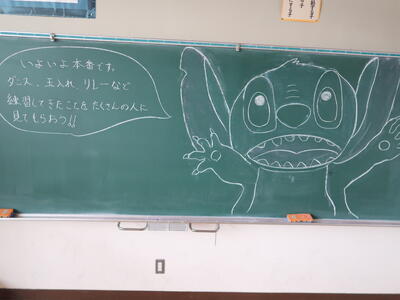 いよいよ本番です。
ダンス、玉入れ、リレーなど
練習してきたことをたくさんの人に
見てもらおう!!